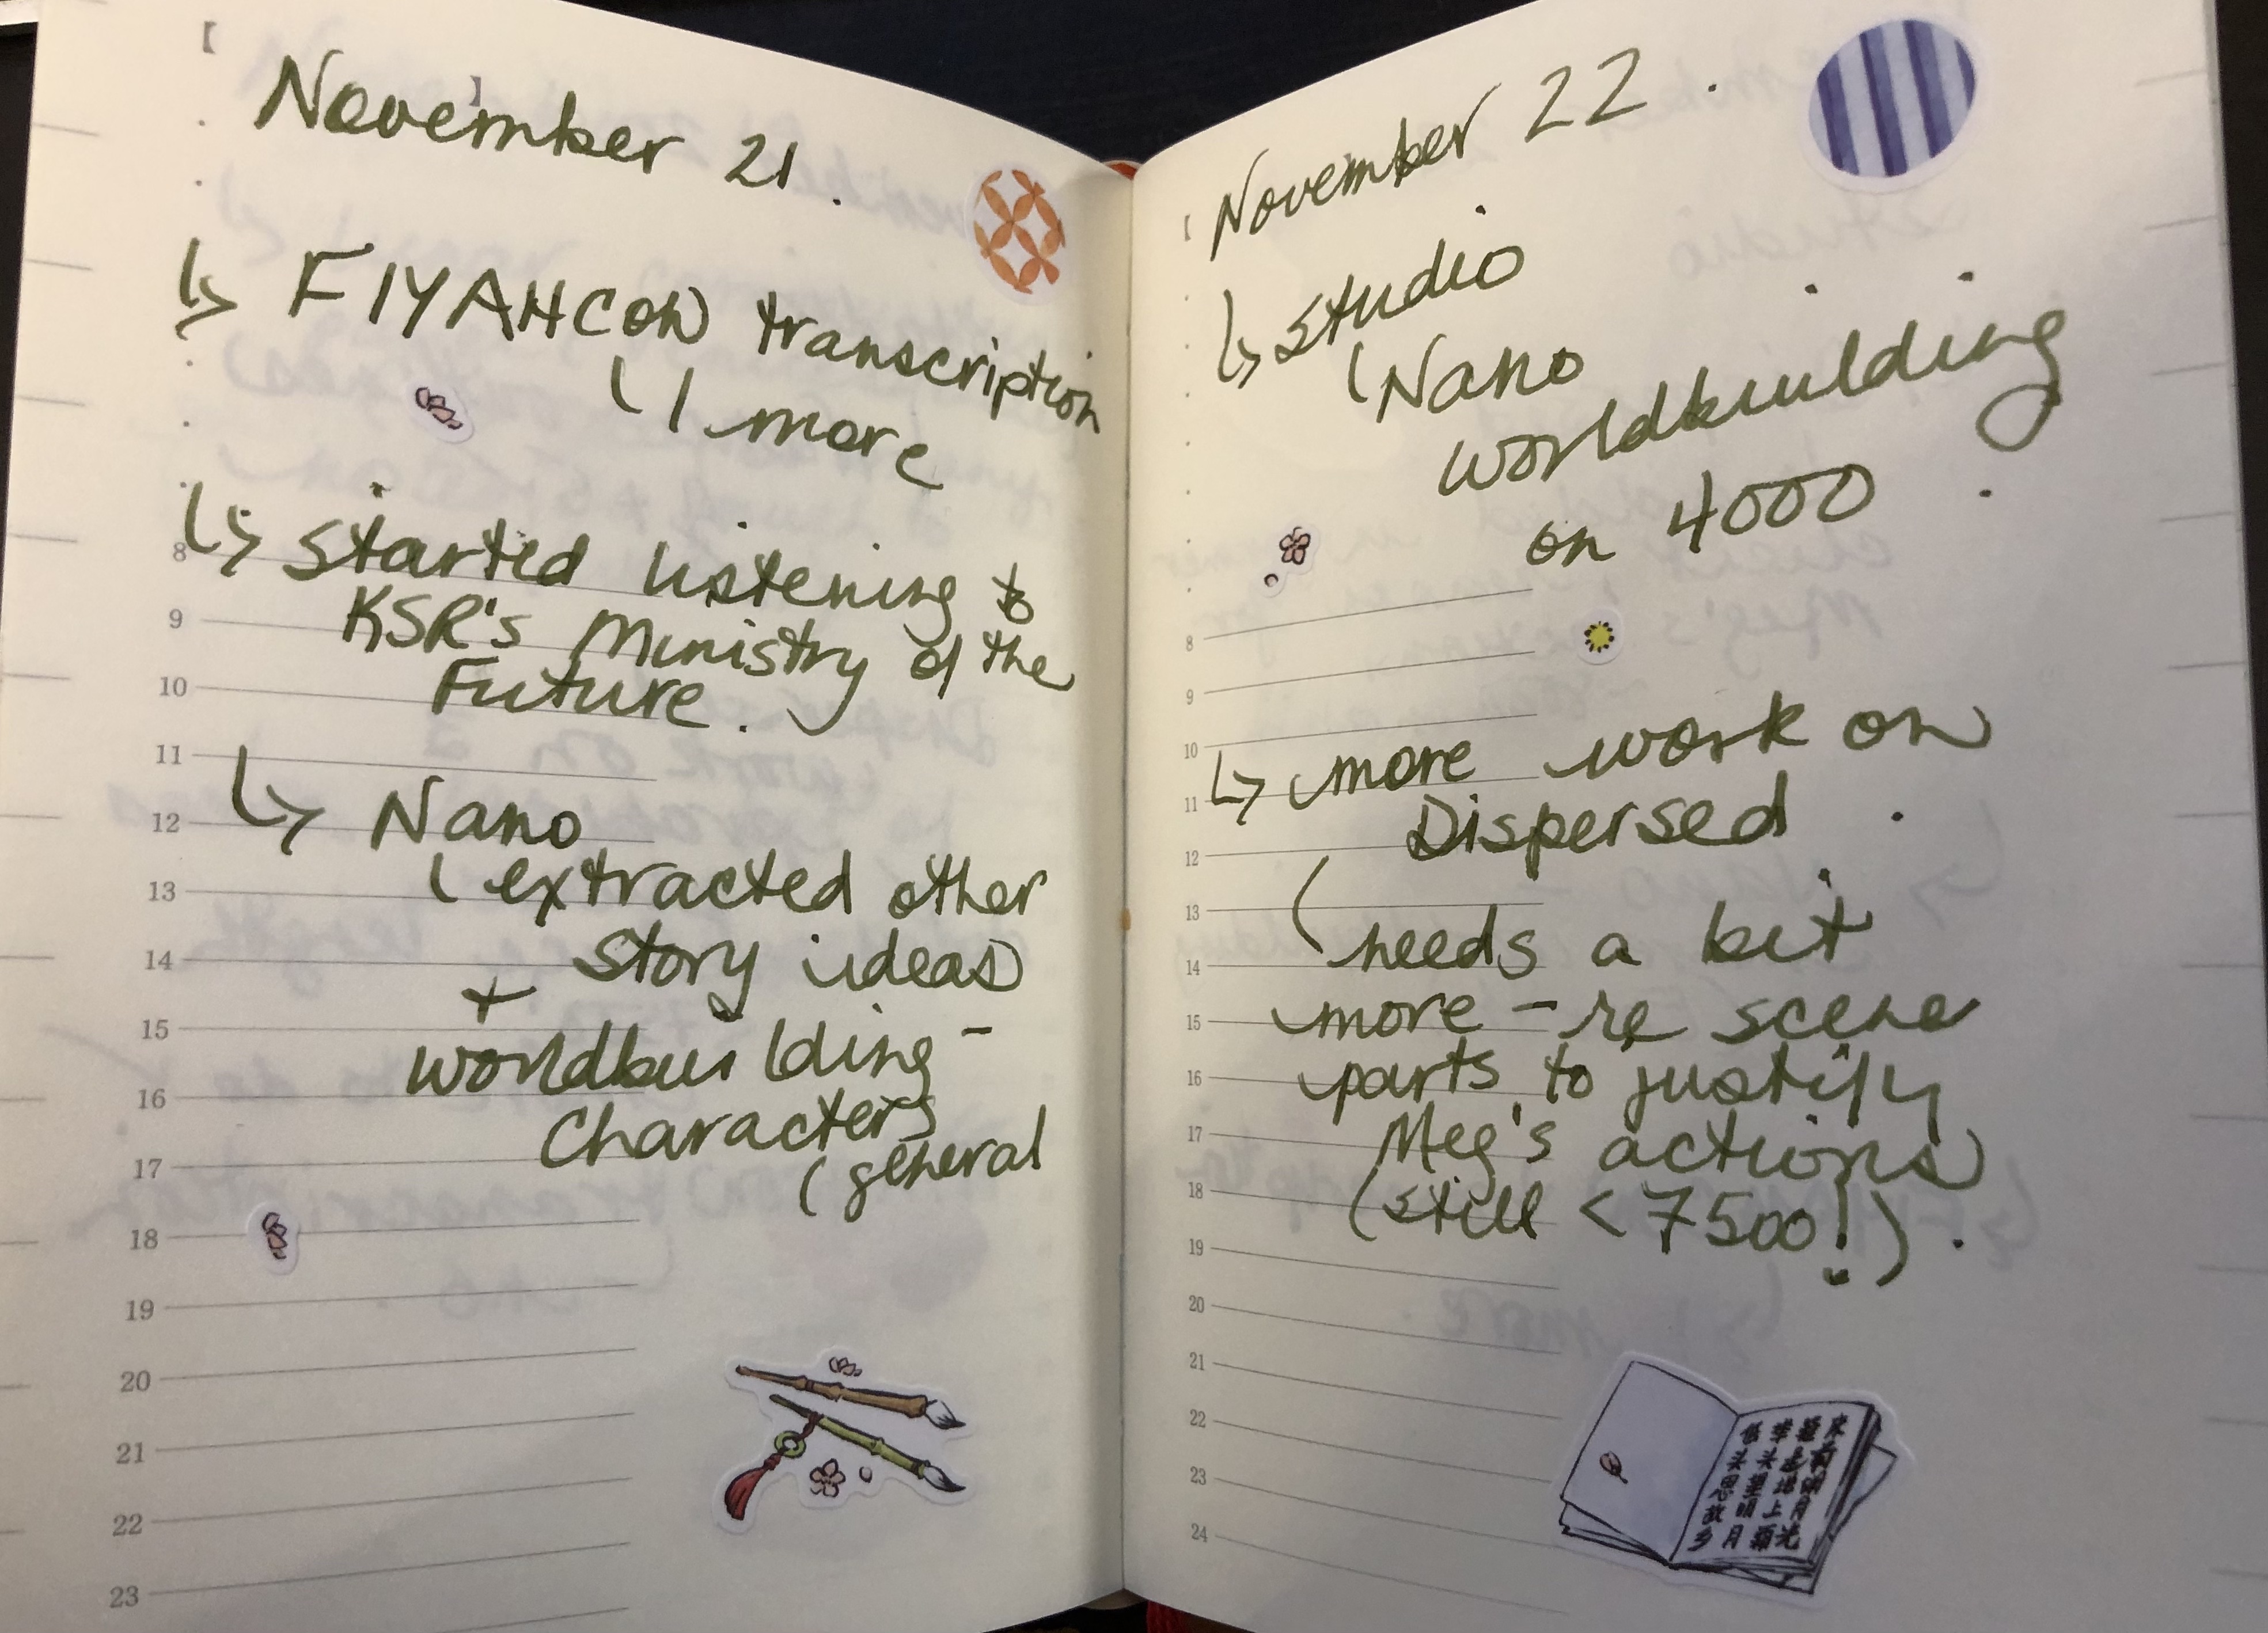 November 21.
↳ FIYAHCON transcription
1 more
↳ started listening to
KSR's Ministry of the
Future.
↳ Nano
extracted other
story ideas
+
worldbuilding -
characters
(general
8
9
10
11
12
13
14
15
16
17
18
19
20
21
22
23
November 22.
↳ studio
Nano
worldbuilding
on 4000
↳ more work on
Dispersed
needs a bit
more - re scene
parts to justify
Meg's actions
(still < 7500!)
8
9
10
11
12
13
14
15
16
17
18
19
20
21
22
23
24
床前明月光
疑是地上霜
举头望明月
低头思故乡